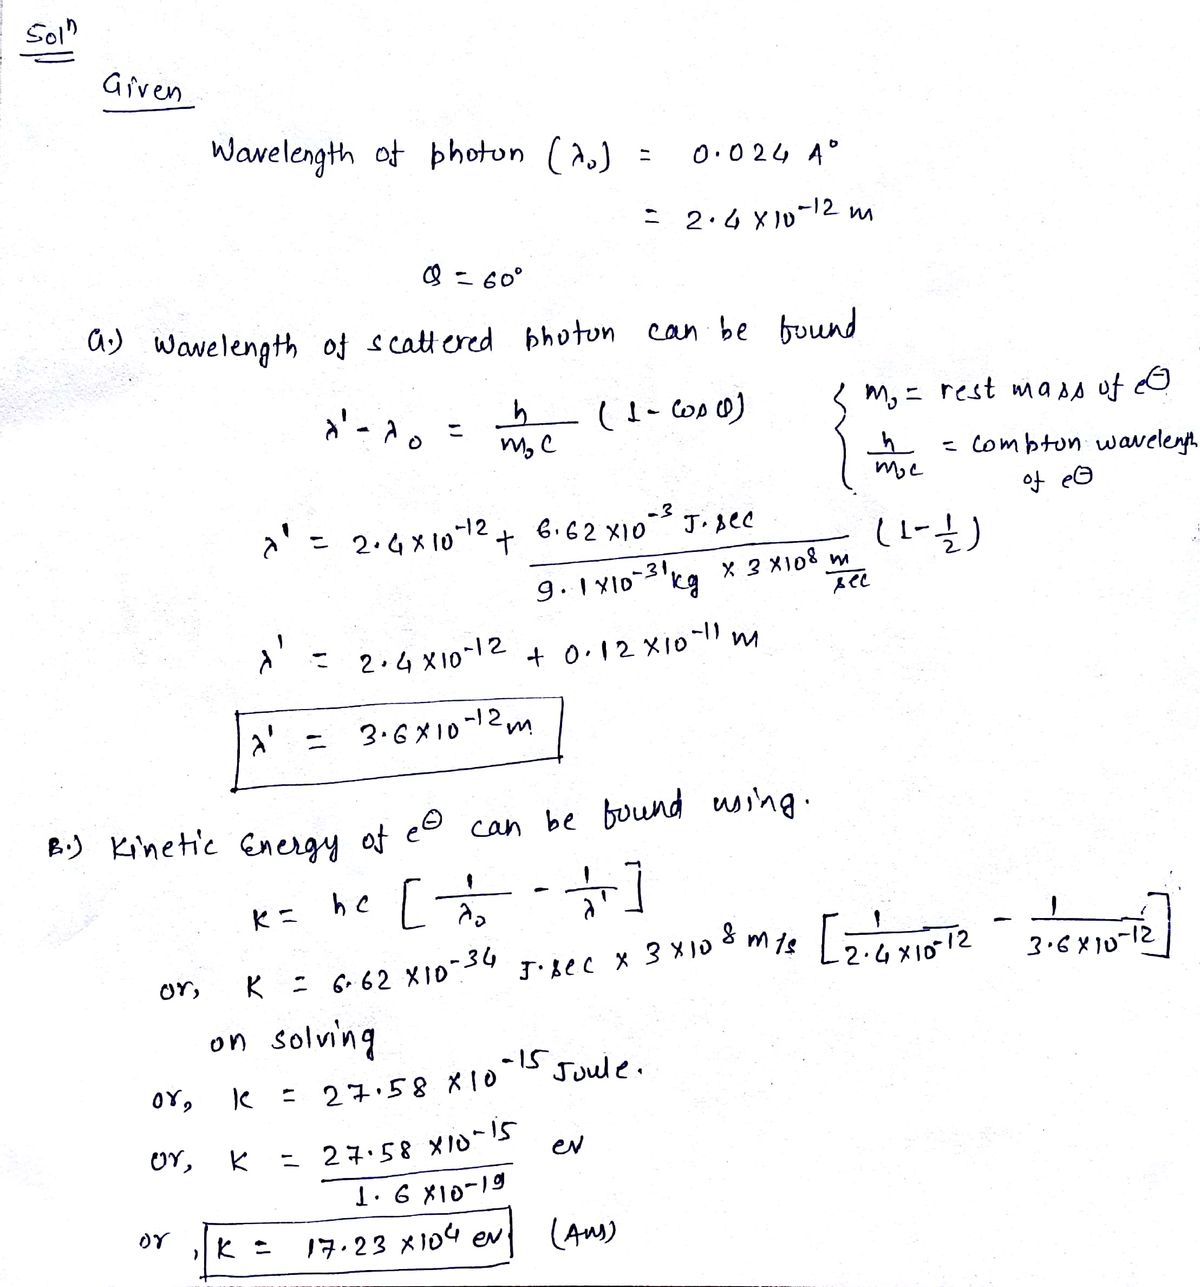 Solⁿ
Given
Wavelength of photon (λ₀) = 0.024 A°
= 2.4 X10⁻¹² m
Φ = 60°
a.) Wavelength of scattered photon can be found
λ' - λ₀ = h/(m₀c) (1 - Cos Φ)
{ m₀ = rest mass of e⊖
h/(m₀c) = Compton wavelength
of e⊖
λ' = 2.4 X10⁻¹² + (6.62 X10⁻³ J.sec)/(9.1 X10⁻³¹ kg X 3 X10⁸ m/sec) (1 - 1/2)
λ' = 2.4 X10⁻¹² + 0.12 X10⁻¹¹ m
λ' = 3.6 X10⁻¹² m
B.) Kinetic Energy of e⊖ can be found using.
K = hc [1/λ₀ - 1/λ']
or, K = 6.62 X10⁻³⁴ J.sec x 3 X10⁸ m/s [1/(2.4 X10⁻¹²) - 1/(3.6 X10⁻¹²)]
on solving
or, K = 27.58 X10⁻¹⁵ Joule.
or, K = (27.58 X10⁻¹⁵)/(1.6 X10⁻¹⁹) ev
or, K = 17.23 X10⁴ ev (Ans)